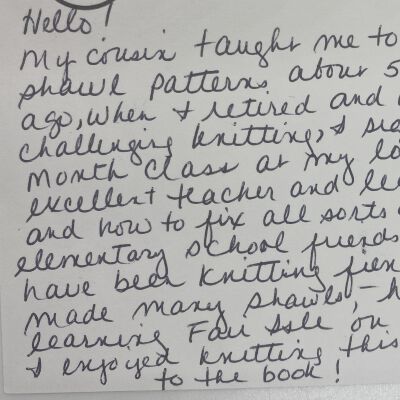 Hello!
My cousin taught me to
shawl patterns about 5
ago, when I retired and
challenging knitting, I
month class at my lo
excellent teacher and le
and how to fix all sorts
elementary school friends
have been knitting fien
made many shawls, –
learning Fair Isle on
I enjoyed knitting this
to the book!